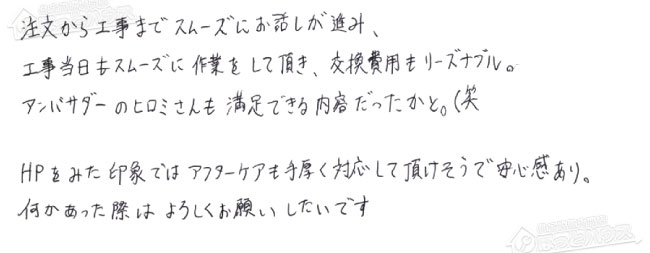 注文から工事までスムーズにお話しが進み、
工事当日もスムーズに作業をして頂き、交換費用もリーズナブル。
アンバサダーのヒロミさんも満足できる内容だったかと。(笑
HPをみた印象ではアフターケアも手厚く対応して頂けそうで安心感あり。
何かあった際はよろしくお願いしたいです